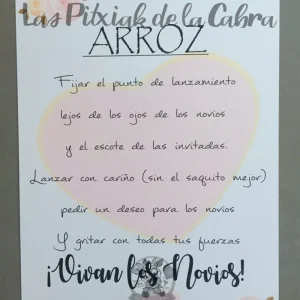 Las Pitxiak de la Cabra
ARROZ
Fijar el punto de lanzamiento
lejos de los ojos de los novios
y el escote de las invitadas.
Lanzar con cariño (sin el saquito mejor)
pedir un deseo para los novios
Y gritar con todas tus fuerzas
¡Vivan los Novios!